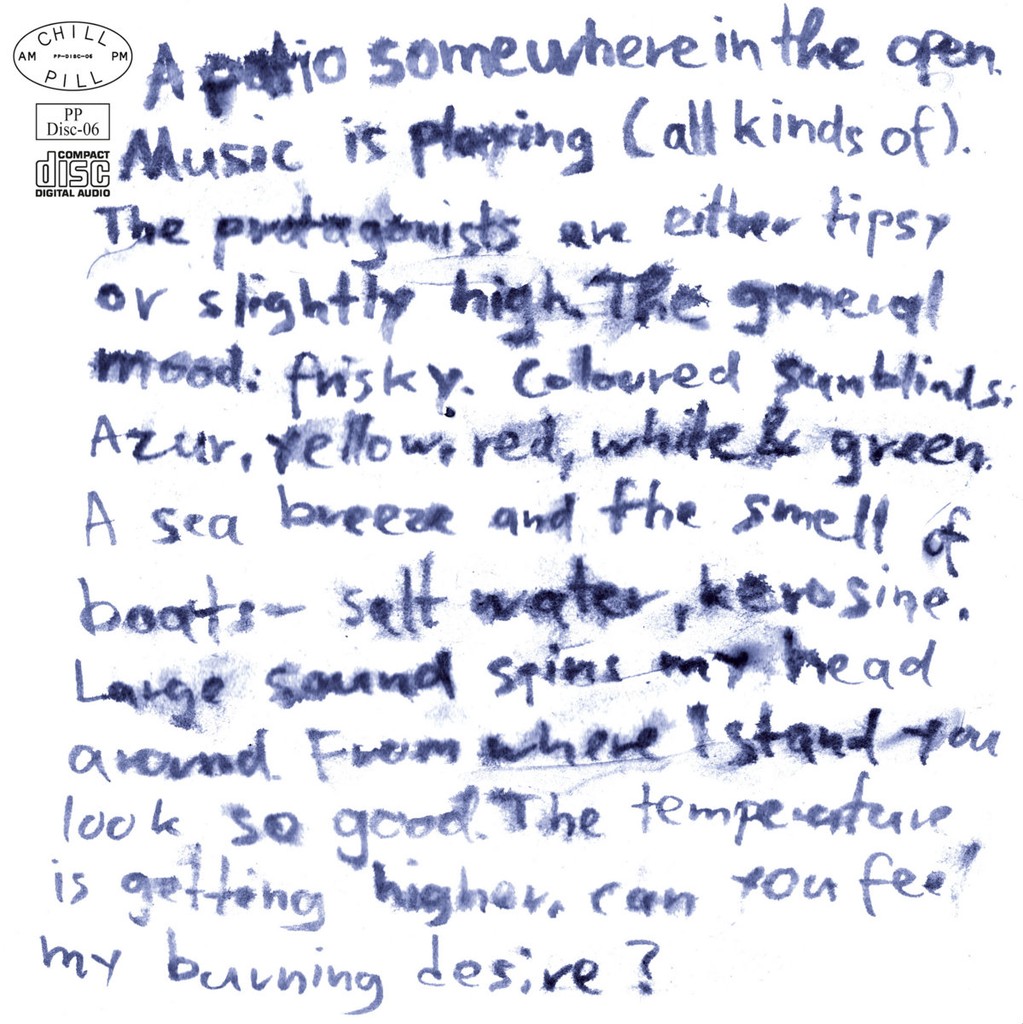 CHILL
AM PP-DISC-06 PM
PILL
PP
Disc-06
COMPACT
disc
DIGITAL AUDIO
A patio somewhere in the open.
Music is playing (all kinds of).
The protagonists are either tipsy
or slightly high. The general
mood: frisky. Coloured sunblinds:
Azur, yellow, red, white & green.
A sea breeze and the smell of
boats - salt water, kerosine.
Large sound spins my head
around. From where I stand you
look so good. The temperature
is getting higher, can you feel
my burning desire?